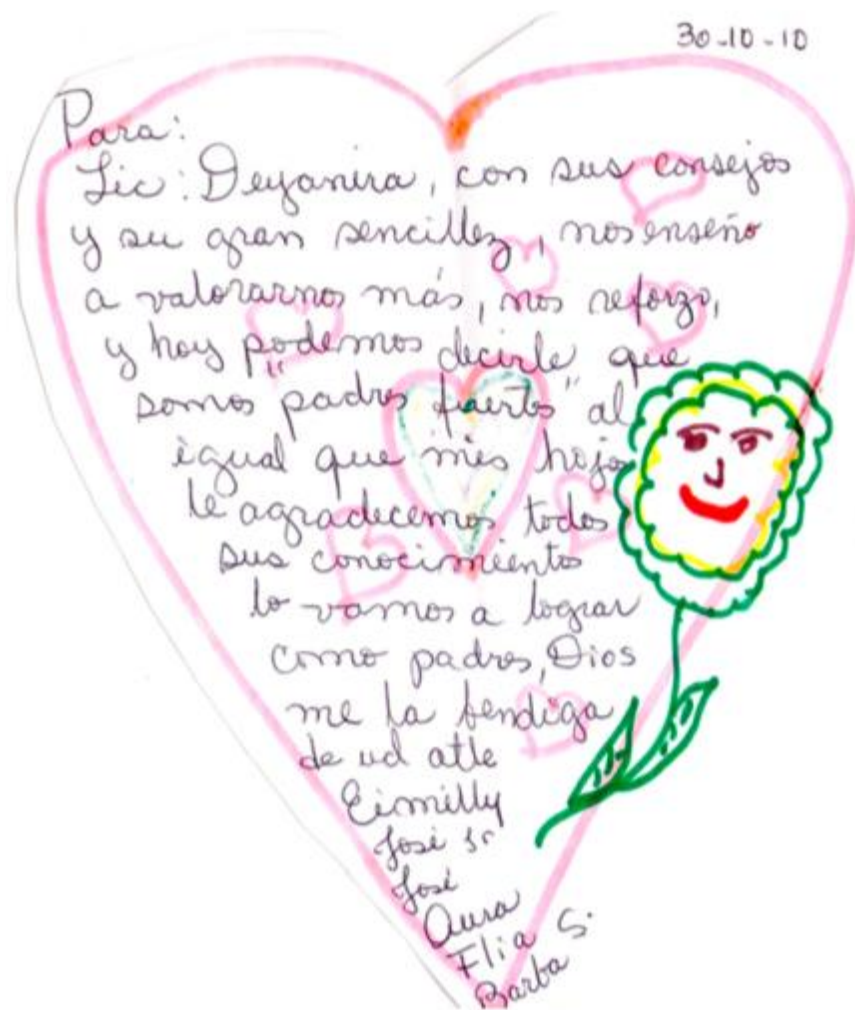 30-10-10
Para:
Lic: Deyanira, con sus consejos
y su gran sencillez, nos enseño
a valorarnos más, nos reforzo,
y hoy podemos decirle que
somos padres "fuertes" al
igual que mis hijos
le agradecemos todos
sus conocimientos
lo vamos a lograr
como padres, Dios
me la bendiga
de ud atte
Eimilly
José
José
Aura
Flia S.
Barba